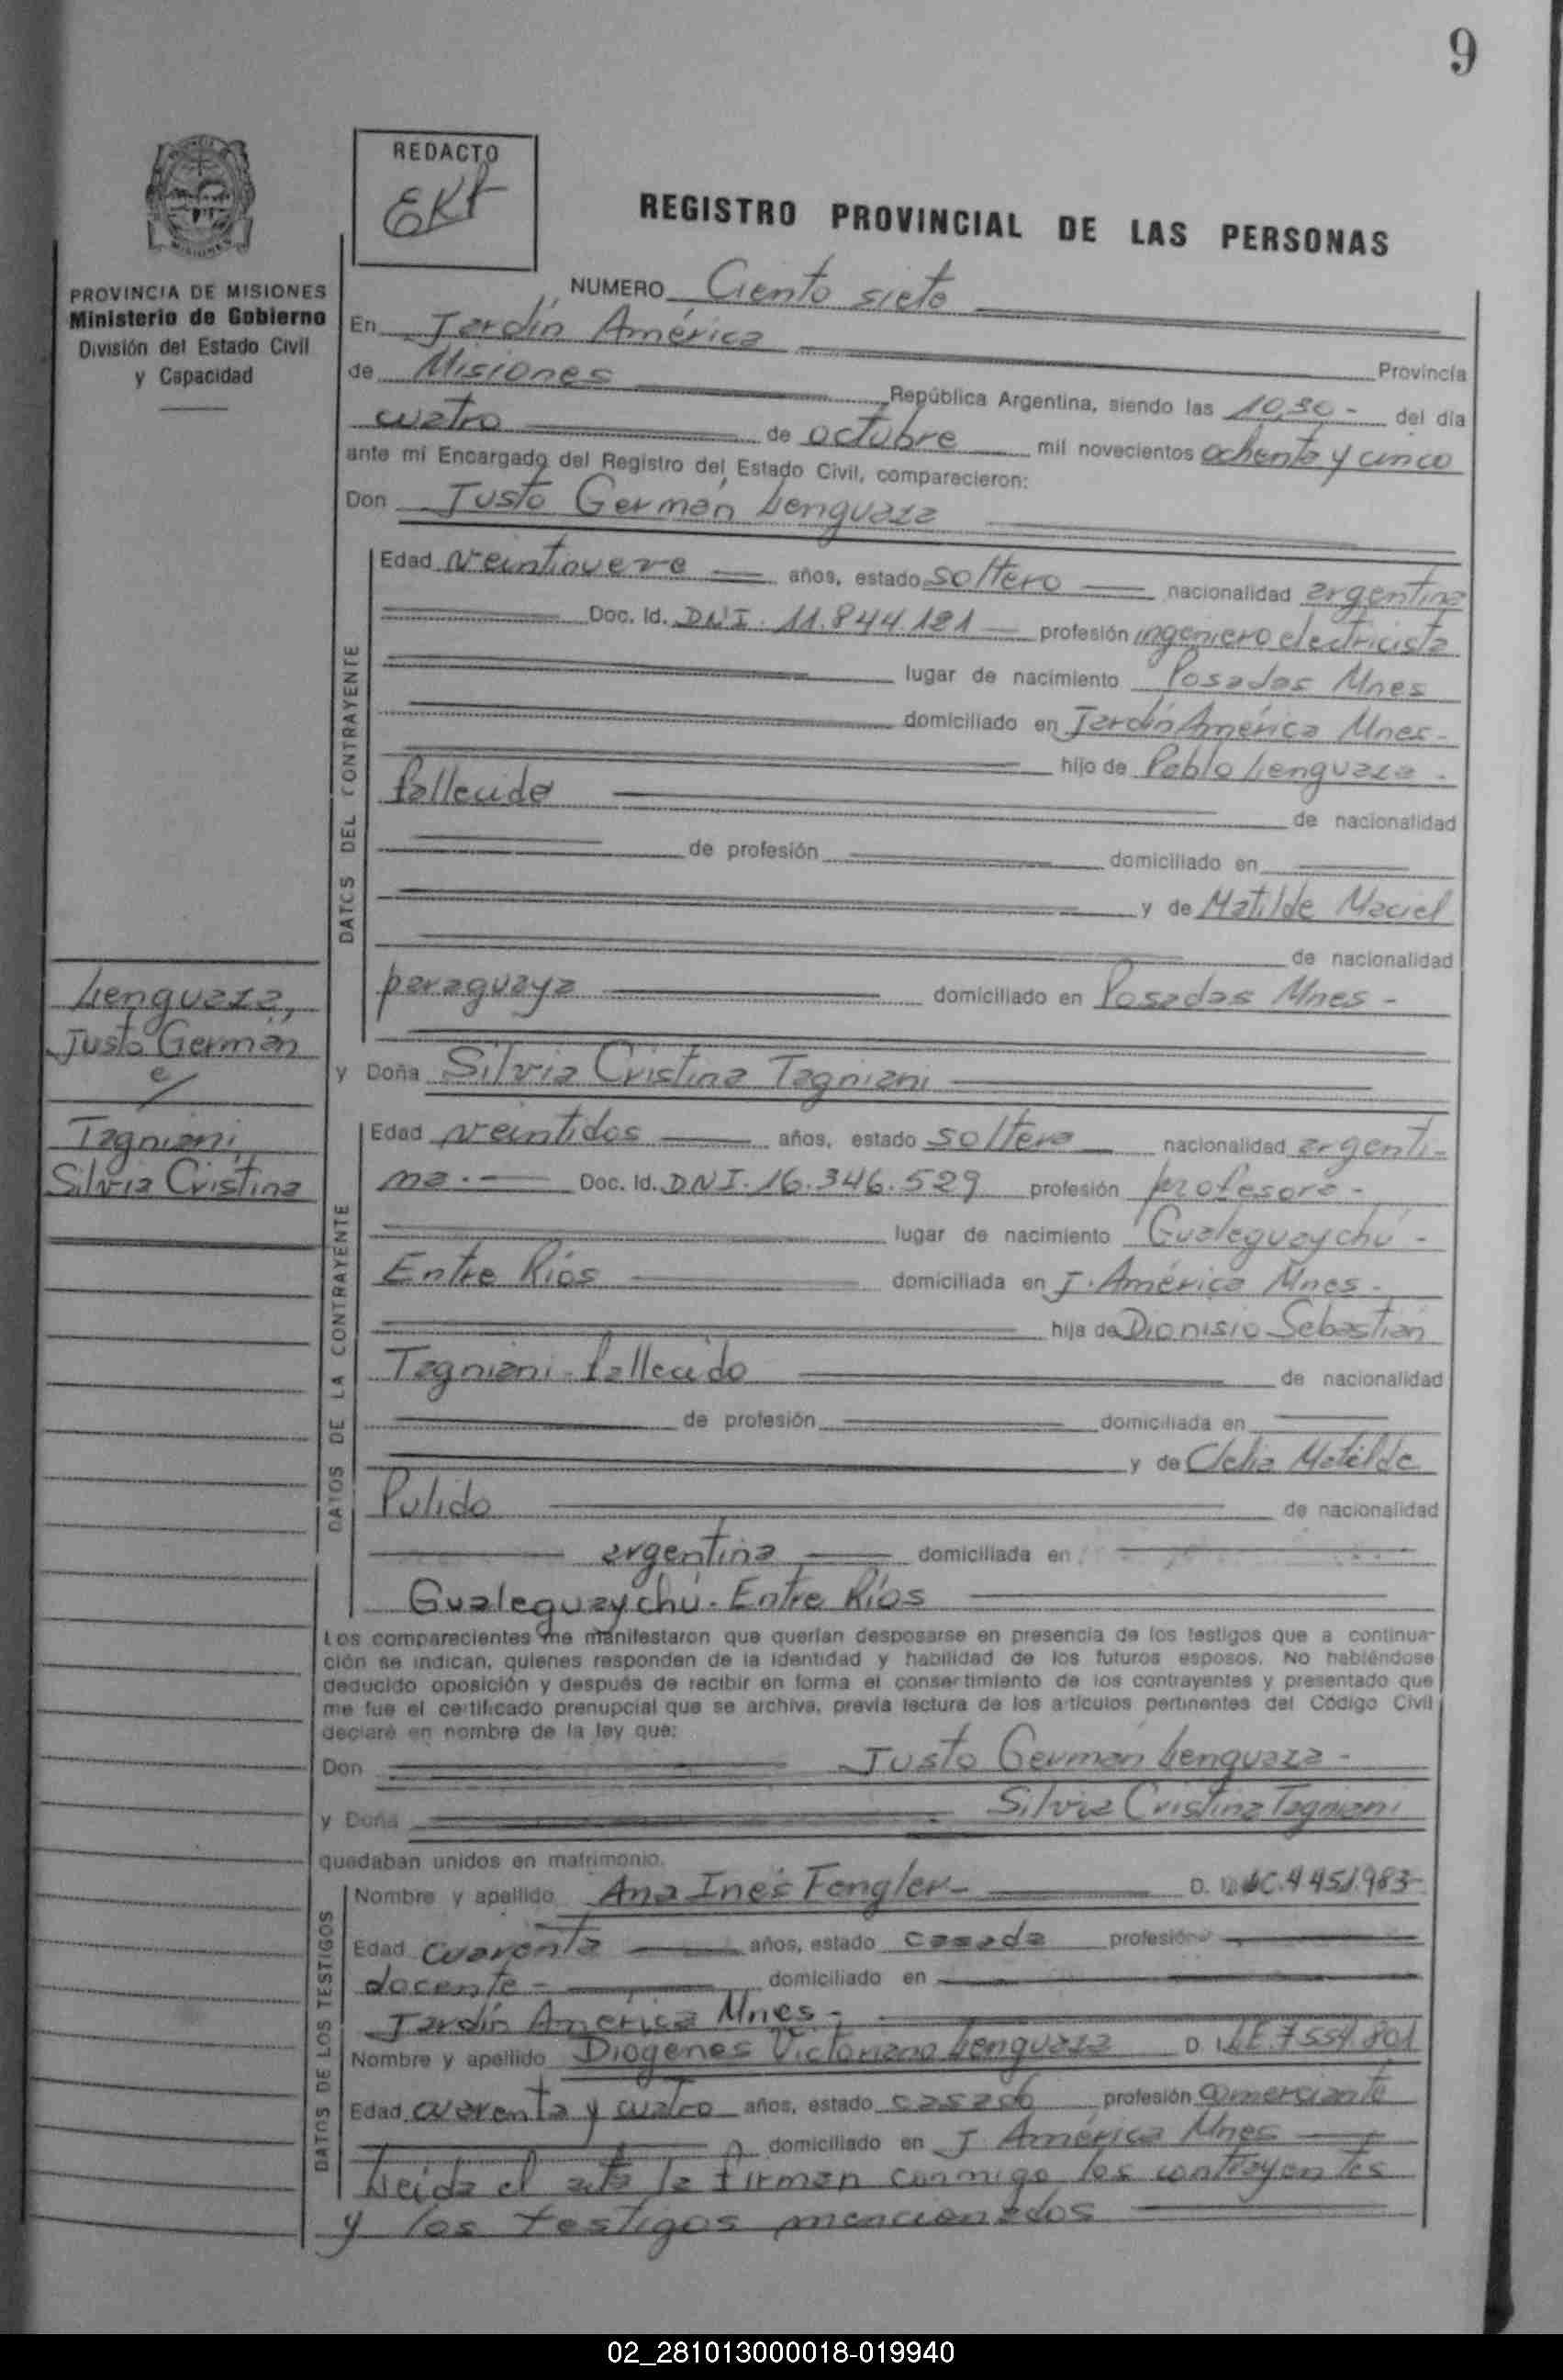 9
REDACTO
REGISTRO PROVINCIAL DE LAS PERSONAS
PROVINCIA DE MISIONES
Ministerio de Gobierno
División del Estado Civil
y Capacidad
NUMERO Ciento siete
En Jardín América Provincia
de Misiones República Argentina, siendo las 10,30 - del día
cuatro de octubre mil novecientos ochenta y cinco
ante mí Encargado del Registro del Estado Civil, comparecieron:
Don Justo Germán Lenguaza
DATOS DEL CONTRAYENTE
Edad veintinueve años, estado soltero nacionalidad argentina
Doc. Id. DNI. 11.844.121 profesión ingeniero electricista
lugar de nacimiento Posadas Mnes
domiciliado en Jardín América Mnes-
hijo de Pablo Lenguaza -
fallecido de nacionalidad
de profesión domiciliado en
y de Matilde Maciel
de nacionalidad
paraguaya domiciliado en Posadas Mnes -
Lenguaza,
Justo Germán
c/
Tagniani,
Silvia Cristina
y Doña Silvia Cristina Tagniani
DATOS DE LA CONTRAYENTE
Edad veintidos años, estado soltera nacionalidad argenti-
na.- Doc. Id. DNI. 16.346.529 profesión profesora-
lugar de nacimiento Gualeguaychú -
Entre Ríos domiciliada en J. América Mnes-
hija de Dionisio Sebastián
Tagniani - fallecido de nacionalidad
de profesión domiciliada en
y de Clelia Matilde
Pulido de nacionalidad
argentina domiciliada en
Gualeguaychú. Entre Ríos
Los comparecientes me manifestaron que querían desposarse en presencia de los testigos que a continua-
ción se indican, quienes responden de la identidad y habilidad de los futuros esposos. No habiéndose
deducido oposición y después de recibir en forma el consertimiento de los contrayentes y presentado que
me fue el certificado prenupcial que se archiva, previa lectura de los artículos pertinentes del Código Civil
declaré en nombre de la ley que:
Don Justo Germán Lenguaza -
y Doña Silvia Cristina Tagniani
quedaban unidos en matrimonio.
DATOS DE LOS TESTIGOS
Nombre y apellido Ana Inés Fengler- D. LC. 4451.983
Edad cuarenta años, estado casada profesión
docente - domiciliado en
Jardín América Mnes-
Nombre y apellido Diogenes Victoriano Lenguaza D. I. LE. 7 554.801
Edad cuarenta y cuatro años, estado casado profesión comerciante
domiciliado en J. América Mnes
Leida el acta la firman conmigo los contrayentes
y los testigos mencionados
02_281013000018-019940